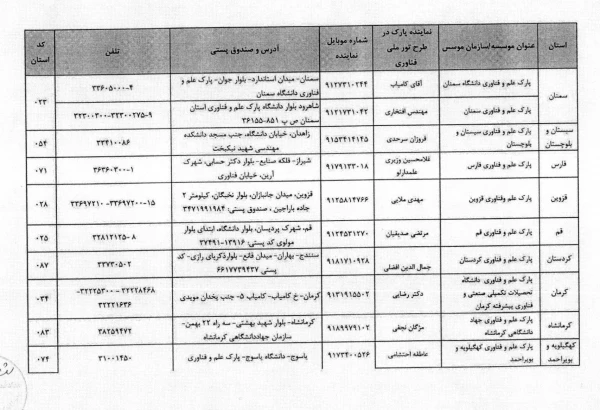 استان | عنوان موسسه/سازمان موسس | نماینده پارک در طرح تور ملی فناوری | شماره موبایل نماینده | آدرس و صندوق پستی | تلفن | کد استان
سمنان | پارک علم و فناوری دانشگاه سمنان | آقای کامیاب | ۹۱۲۷۳۱۰۲۴۴ | سمنان- میدان استاندارد- بلوار جوان- پارک علم و فناوری دانشگاه سمنان | ۳۳۶۰۵۰۰۰-۴ | ۰۲۳
پارک علم و فناوری سمنان | مهندس افتخاری | ۹۱۲۱۷۳۱۰۴۲ | شاهرود بلوار دانشگاه پارک علم و فناوری استان سمنان ص پ ۸۵۱-۳۶۱۵۵ | ۳۲۳۰۰۳۰۰-۳۲۳۰۰۲۷۵-۹
سیستان و بلوچستان | پارک علم و فناوری سیستان و بلوچستان | فروزان سرحدی | ۹۱۵۳۴۱۴۱۴۵ | زاهدان، خیابان دانشگاه، جنب مسجد دانشکده مهندسی شهید نیکبخت | ۳۳۴۱۰۰۸۶ | ۰۵۴
فارس | پارک علم و فناوری فارس | غلامحسین وزیری علمدارلو | ۹۱۷۹۱۳۳۰۱۸ | شیراز- فلکه صنایع- بلوار دکتر حسابی، شهرک آرین، خیابان فناوری | ۳۶۳۶۰۳۰۰-۱ | ۰۷۱
قزوین | پارک علم وفناوری قزوین | مهدی ملایی | ۹۱۲۵۸۱۴۷۶۶ | قزوین، میدان جانبازان، بلوار نخبگان، کیلومتر ۲ جاده باراجین ، صندوق پستی: ۳۴۷۱۹۹۱۹۸۴ | ۳۳۶۹۷۲۱۰-۳۳۶۹۷۲۰۰-۱۵ | ۰۲۸
قم | پارک علم و فناوری قم | مرتضی صدیقیان | ۹۱۲۴۵۳۱۲۷۰ | قم، شهرک پردیسان، بلوار دانشگاه، ابتدای بلوار مولوی کد پستی: ۱۳۹۱۶-۳۷۴۹۱ | ۳۲۸۱۲۱۲۵-۸ | ۰۲۵
کردستان | پارک علم و فناوری کردستان | جمال الدین افضلی | ۹۱۸۱۷۱۰۹۲۸ | سنندج- بهاران- میدان قانع- بلوارذکریای رازی- کد پستی ۶۶۱۷۷۳۹۴۳۷ | ۳۳۷۳۰۵۰۲ | ۰۸۷
کرمان | پارک علم و فناوری دانشگاه تحصیلات تکمیلی صنعتی و فناوری پیشرفته کرمان | دکتر رضایی | ۹۱۳۱۹۱۵۵۰۲ | کرمان- خ کامیاب- کامیاب ۵- جنب یخدان مویدی | ۳۲۲۲۸۴۶۸ -۳۲۲۲۵۳۰۰ ۳۲۲۲۱۶۳۶ | ۰۳۴
کرمانشاه | پارک علم و فناوری جهاد دانشگاهی کرمانشاه | مژگان نجفی | ۹۱۸۹۹۷۹۱۰۲ | کرمانشاه- بلوار شهید بهشتی- سه راه ۲۲ بهمن- سازمان جهاددانشگاهی کرمانشاه | ۳۸۲۵۹۴۷۲ | ۰۸۳
کهگیلویه و بویراحمد | پارک علم و فناوری کهگیلویه و بویراحمد | عاطفه احتشامی | ۹۱۷۳۴۰۰۵۲۶ | یاسوج- دانشگاه یاسوج- پارک علم و فناوری | ۳۱۰۰۱۴۵۰ | ۰۷۴